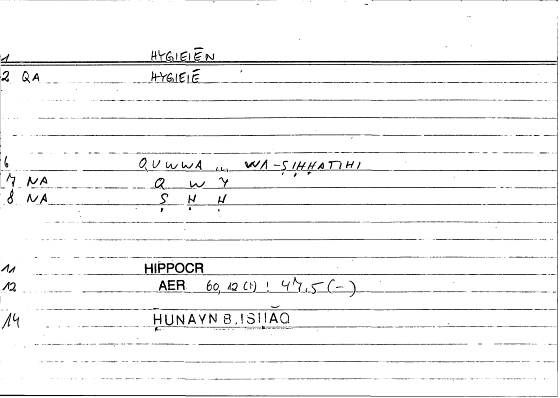 1 HYGIEIĒN
2 QA HYGIEIĒ
6 QUWWA ... WA-ṢIḤḤATIHI
7 NA Q W Y
8 NA Ṣ Ḥ Ḥ
11 HIPPOCR
12 AER 60,12 (1) : 47,5 (-)
14 ḤUNAYN B. ISḤĀQ